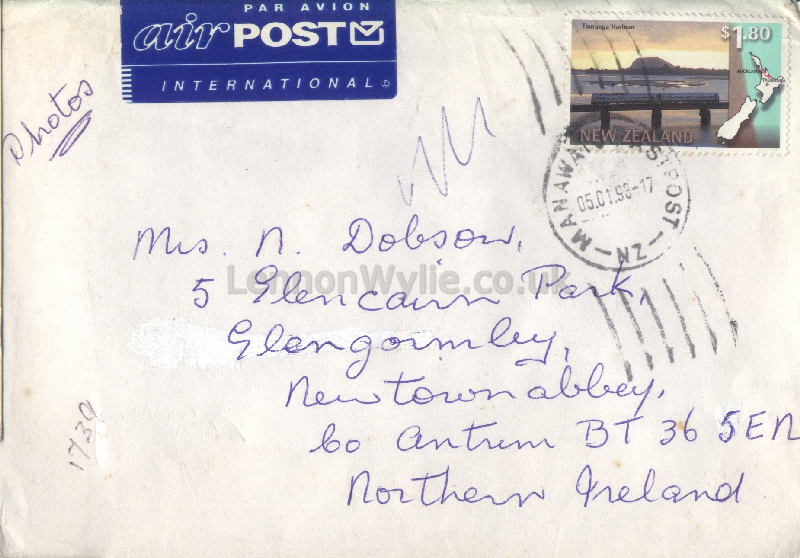 PAR AVION
air POST
INTERNATIONAL ©
Tauranga Harbour
$1.80
AUCKLAND
TAURANGA
NEW ZEALAND
MANAWATU FASTPOST - NZ -
05.01.98-17
Photos
Mrs. N. Dobson,
5 Glencairn Park,
Glengormley,
Newtownabbey,
Co Antrim BT 36 5EN
Northern Ireland
1739
LennonWylie.co.uk